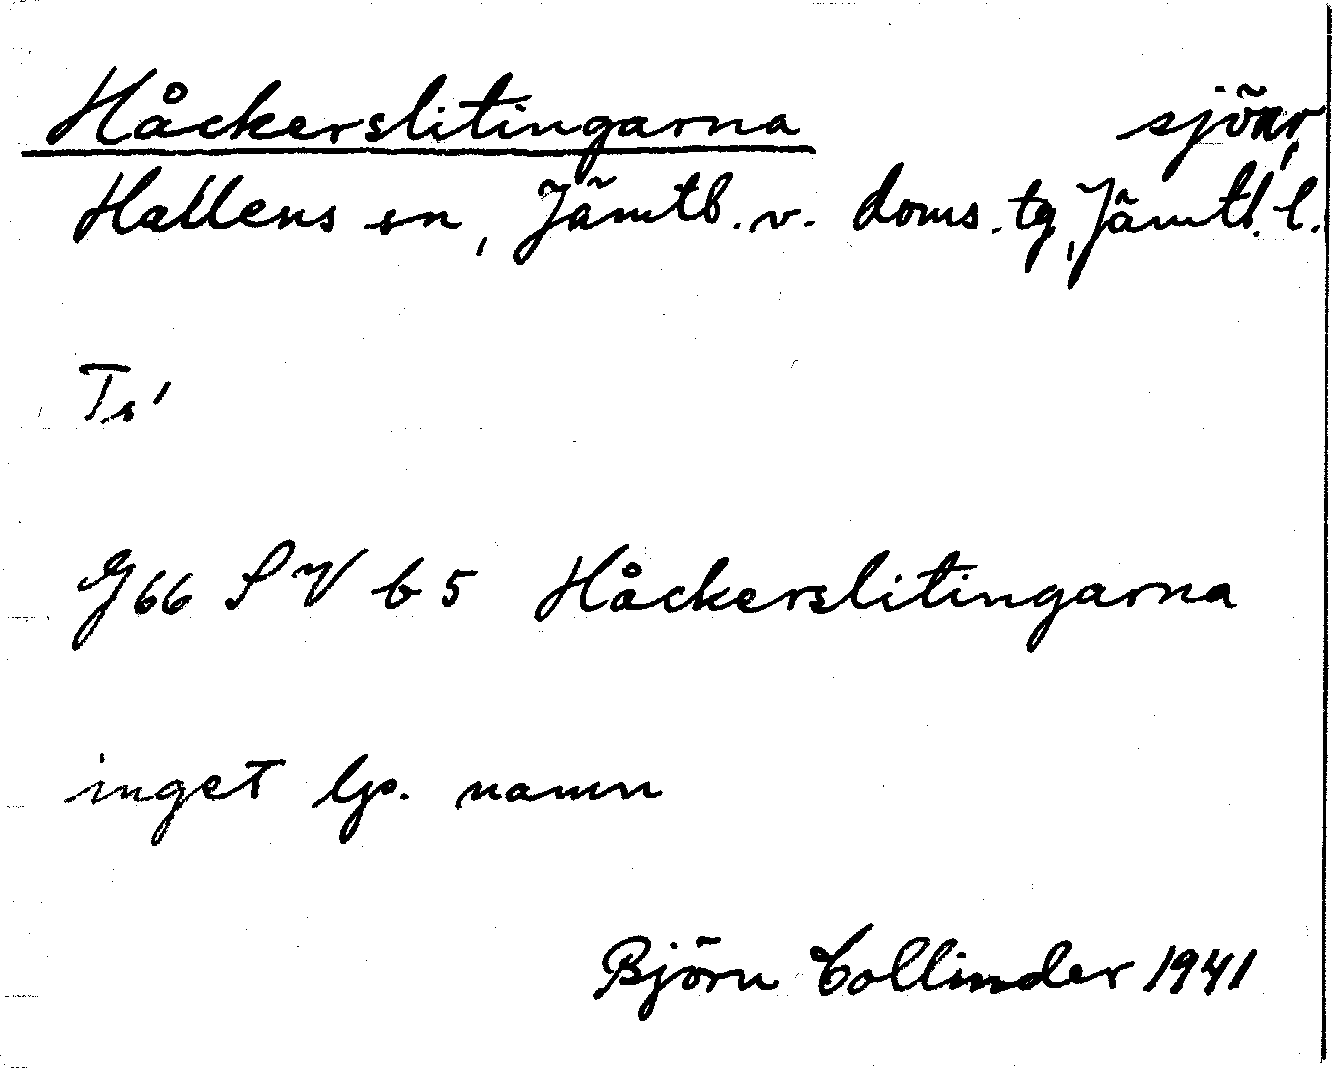 Håckerslitingarna sjöar,
Hallens sn, Jämtl. v. doms. tg, Jämtl. l.
G66 SV b5 Håckerslitingarna
inget lp. namn
Björn Collinder 1941